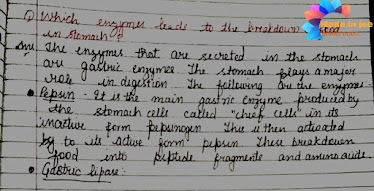 Q) Which enzymes leads to the breakdown
in stomach?
Ans The enzymes that are secreted in the stomach
are gastric enzymes The stomach plays a major
role in digestion The following are the enzymes
• Pepsin - It is the main gastric enzyme produced by
the stomach cells called "chief cells" in its
inactive form pepsinogen This is then activated
by to its active form pepsin. These breakdown
food into peptide fragments and amino acids.
• Gastric lipase: